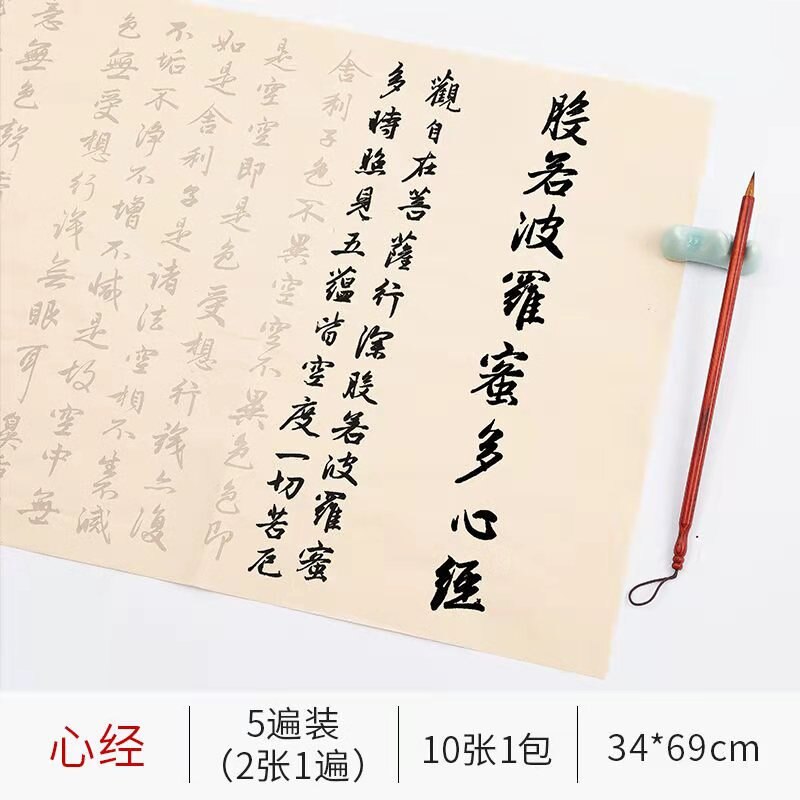 般若波羅蜜多心經
觀自在菩薩行深般若波羅蜜
多時照見五蘊皆空度一切苦厄
舍利子色不異空空不異色色即
是空空即是色受想行識亦復
如是舍利子是諸法空相不生滅
不垢不淨不增不減是故空中無
色無受想行識無眼耳鼻舌
意無色聲
心经
5遍装
（2张1遍）
10张1包
34*69cm